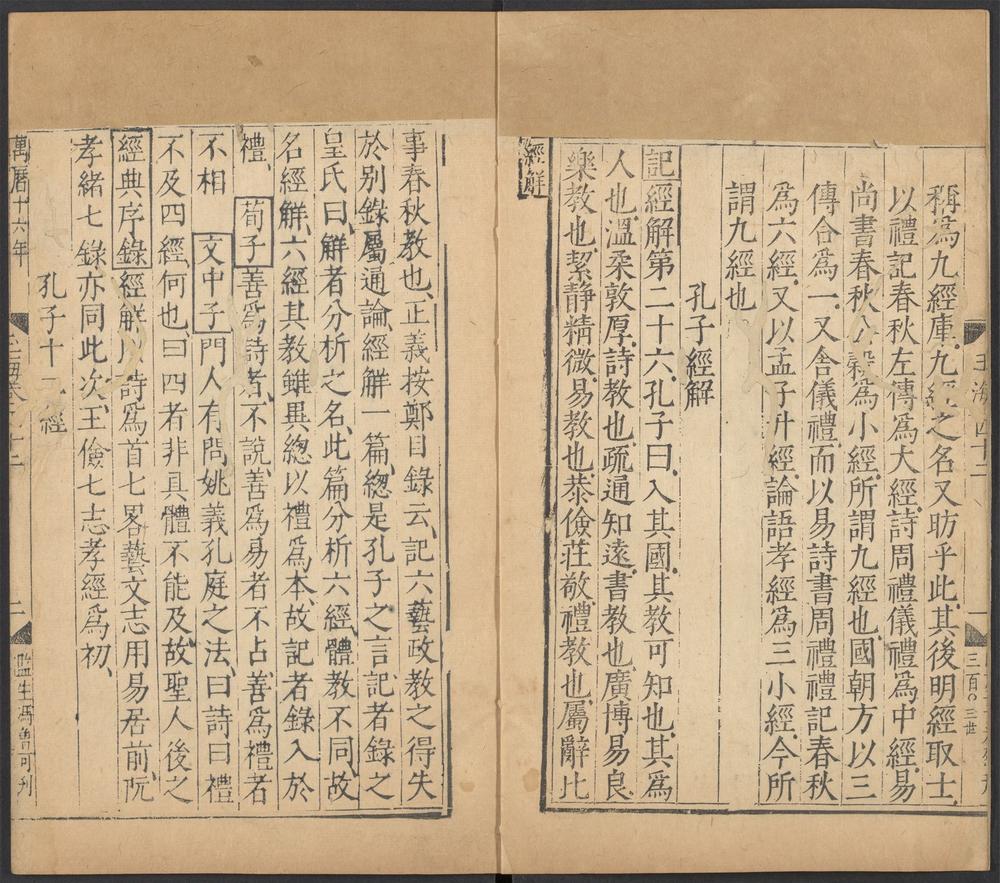 玉海 四十二
一
三百〇三世
稱為九經庫九經之名又昉乎此其後明經取士
以禮記春秋左傳為大經詩周禮儀禮為中經易
尚書春秋公穀為小經所謂九經也國朝方以三
傳合為一又舍儀禮而以易詩書周禮禮記春秋
為六經又以孟子升經論語孝經為三小經今所
謂九經也
孔子經解
記經解第二十六孔子曰入其國其教可知也其為
人也溫柔敦厚詩教也疏通知遠書教也廣博易良
樂教也絜静精微易教也恭儉莊敬禮教也屬辭比
經解
事春秋教也正義按鄭目錄云記六藝政教之得失
於别錄屬通論經觧一篇緫是孔子之言記者錄之
皇氏曰觧者分析之名此篇分析六經體教不同故
名經觧六經其教雖異緫以禮為本故記者錄入於
禮 荀子善為詩者不說善為易者不占善為禮者
不相 文中子門人有問姚義孔庭之法曰詩曰禮
不及四經何也曰四者非具體不能及故聖人後之
經典序錄經解以詩為首七畧藝文志用易居前阮
孝緒七錄亦同此次王儉七志孝經為初
孔子十二經
萬曆十六年
二
監生馮曾可刋